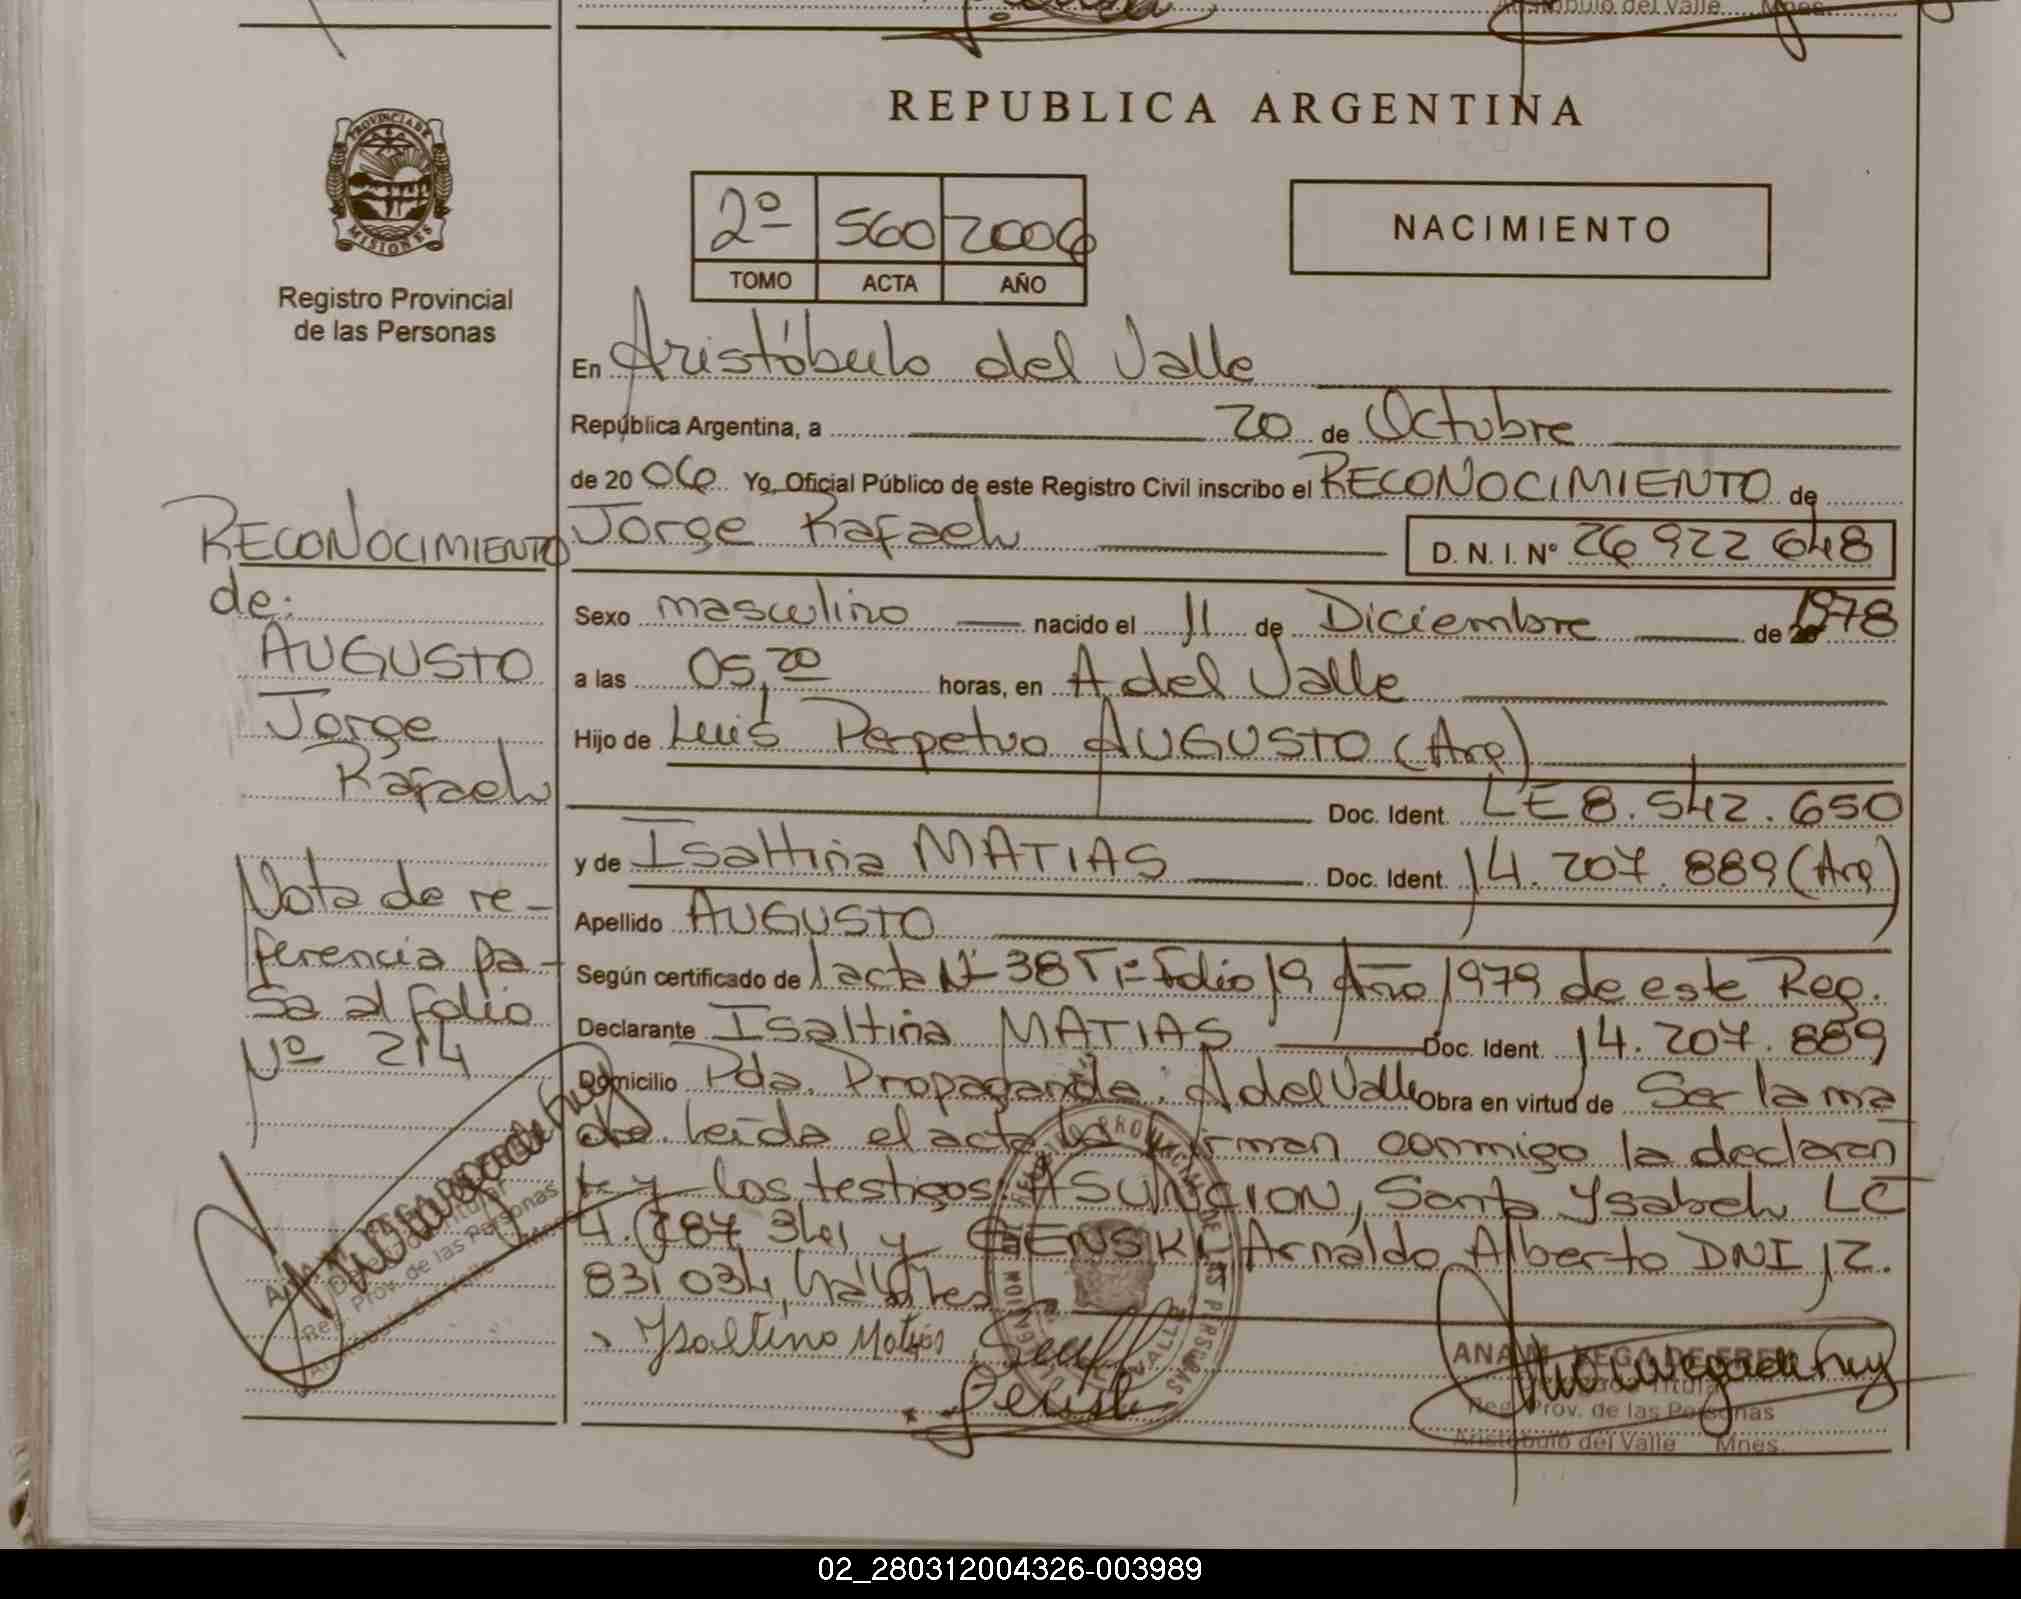 REPUBLICA ARGENTINA
PROVINCIA DE MISIONES
Registro Provincial
de las Personas
2º 560 2006
TOMO ACTA AÑO
NACIMIENTO
En Aristóbulo del Valle
República Argentina, a 20 de Octubre
de 20 06 Yo, Oficial Público de este Registro Civil inscribo el RECONOCIMIENTO de
Jorge Rafael D. N. I. Nº 26 922 648
Sexo masculino nacido el 11 de Diciembre de 1978
a las 05,20 horas, en A del Valle
Hijo de Luis Perpetuo AUGUSTO (Arg)
Doc. Ident. LE 8.542.650
y de Isaltina MATIAS Doc. Ident. 14.207.889 (Arg)
Apellido AUGUSTO
Según certificado de acta Nº 38 Tº Folio 19 Año 1979 de este Reg.
Declarante Isaltina MATIAS Doc. Ident. 14.207.889
Domicilio Pda. Propaganda. A del Valle Obra en virtud de Ser la ma
dre. Leída el acta la firman conmigo la declaran
te y los testigos: ASUNCION, Santa Ysabel LC
4. 787 341 y GENSKI, Arnaldo Alberto DNI 12.
831 034, hábiles
Ysaltina Matias
ANA M. VEGA DE FREY
Titular
Reg. Prov. de las Personas
Aristóbulo del Valle Mnes.
RECONOCIMIENTO
de:
AUGUSTO
Jorge
Rafael
Nota de re-
ferencia pa-
sa al folio
Nº 214
Reg. Prov. de las Personas
Aristóbulo del Valle Mnes.
Aristóbulo del Valle Mnes.
02_280312004326-003989